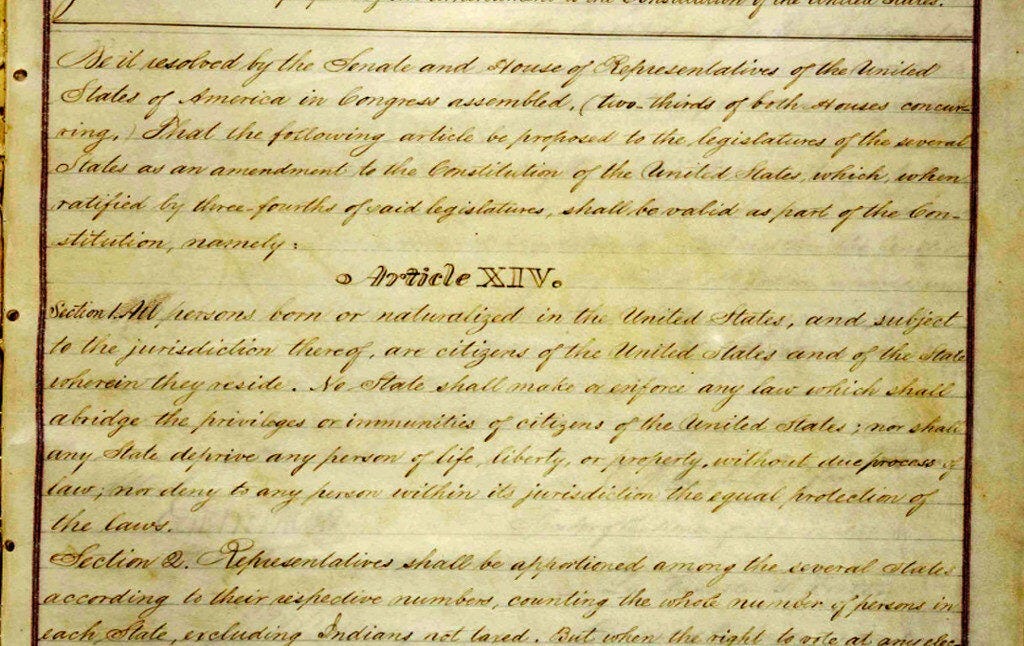 to the Constitution of the United States.
Be it resolved by the Senate and House of Representatives of the United
States of America in Congress assembled, (two-thirds of both Houses concur-
ring,) That the following article be proposed to the legislatures of the several
States as an amendment to the Constitution of the United States, which, when
ratified by three-fourths of said legislatures, shall be valid as part of the Con-
stitution, namely:
Article XIV.
Section 1. All persons born or naturalized in the United States, and subject
to the jurisdiction thereof, are citizens of the United States and of the State
wherein they reside. No State shall make or enforce any law which shall
abridge the privileges or immunities of citizens of the United States; nor shall
any State deprive any person of life, liberty, or property, without due process of
law; nor deny to any person within its jurisdiction the equal protection of
the laws.
Section 2. Representatives shall be apportioned among the several States
according to their respective numbers, counting the whole number of persons in
each State, excluding Indians not taxed. But when the right to vote at any elec-